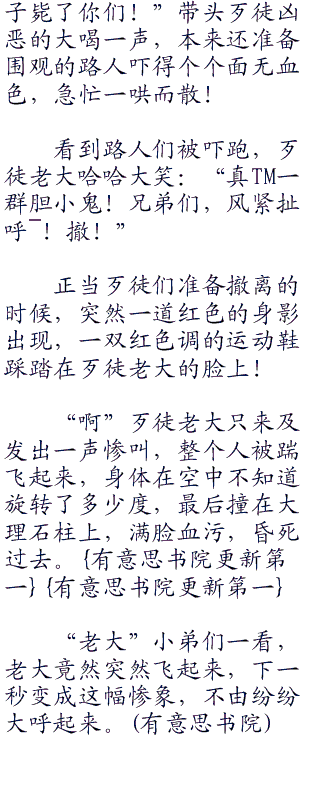 子毙了你们！”带头歹徒凶
恶的大喝一声，本来还准备
围观的路人吓得个个面无血
色，急忙一哄而散！
看到路人们被吓跑，歹
徒老大哈哈大笑：“真TM一
群胆小鬼！兄弟们，风紧扯
呼¯！撤！”
正当歹徒们准备撤离的
时候，突然一道红色的身影
出现，一双红色调的运动鞋
踩踏在歹徒老大的脸上！
“啊”歹徒老大只来及
发出一声惨叫，整个人被踹
飞起来，身体在空中不知道
旋转了多少度，最后撞在大
理石柱上，满脸血污，昏死
过去。{有意思书院更新第
一}{有意思书院更新第一}
“老大”小弟们一看，
老大竟然突然飞起来，下一
秒变成这幅惨象，不由纷纷
大呼起来。(有意思书院)